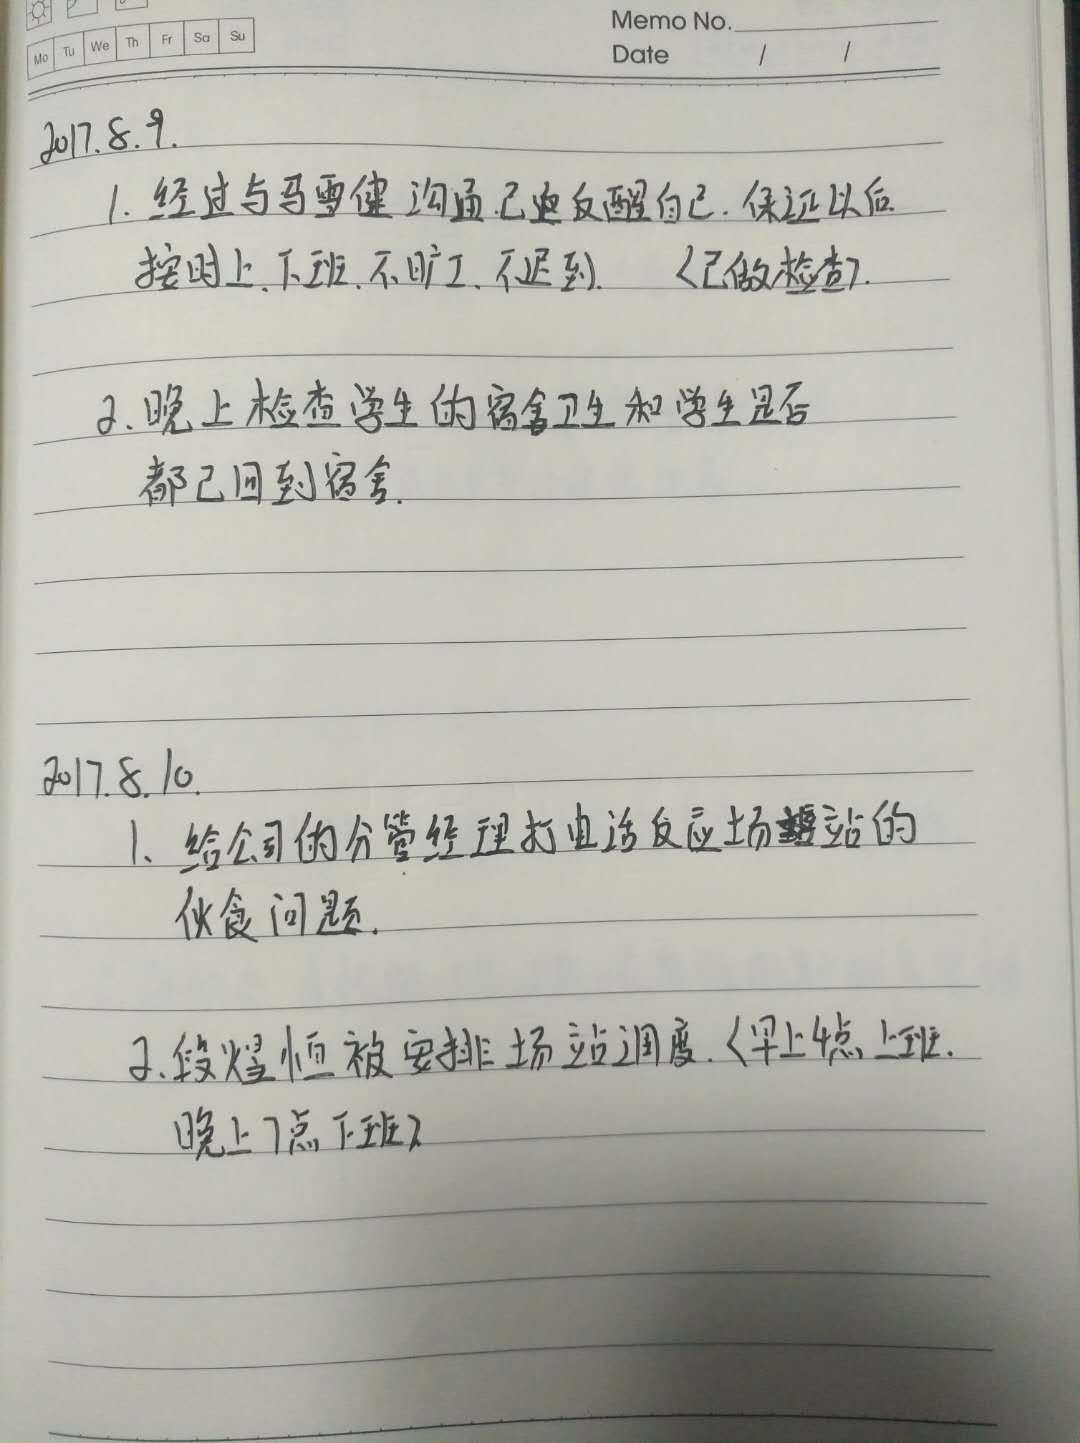 Memo No.
Mo Tu We Th Fr Sa Su
Date / /
2017.8.9.
1. 经过与马雪健沟通.已反醒自己.保证以后
按时上、下班、不旷工、不迟到. 〈已做检查〉.
2. 晚上检查学生的宿舍卫生和学生是否
都已回到宿舍.
2017.8.10.
1、给公司的分管经理打电话反应场站的
伙食问题.
2. 段煜恒被安排场站调度.〈早上4点上班.
晚上7点下班〉